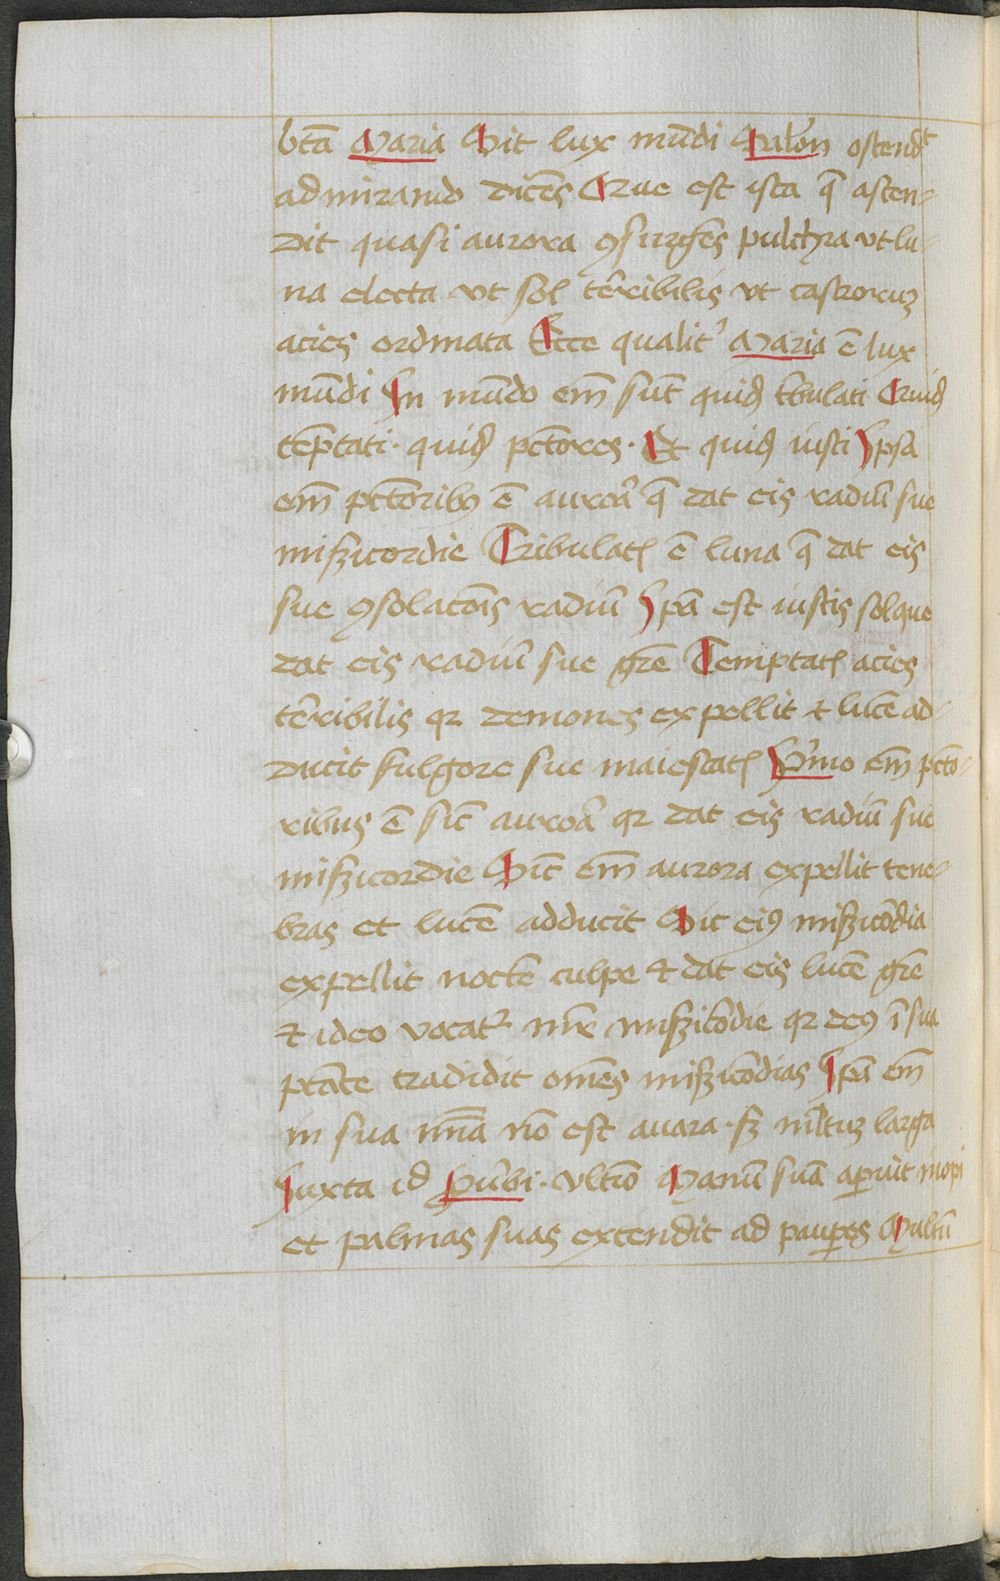 btā Maria Sit lux mūdi Salon̄ ostendt
admirando dicēs Que est ista q̄ ascen-
dit quasi aurora ꝯsurgēs pulchra vt lu-
na electa vt sol tēribilis vt castroruꝫ
acies ordinata Ecce qualit᾽ Maria ē lux
mūdi In mūdo em̄ sūt quidꝫ t͛bulati Quidꝫ
tēptati · quidꝫ pctores · Et quidꝫ iusti Ipsa
em̄ pctoribꝰ ē auror̄a q̄ dat eis radiū sue
misꝫicordie Tribulatꝭ ē luna q̄ dat eis
sue ꝯsolacōis radiū Ipā est iustis sol que
dat eis radiū sue gr̄e Temptatꝭ acies
tēribilis qꝛ demones expellit ⁊ lucē ad-
ducit fulgore sue maiestatꝭ Pͥmo em̄ pcto-
ribus ē sic̄ auror̄a qꝛ dat eis radiū sue
misꝫicordie Sic̄ em̄ aurora expellit tene-
bras et lucē adducit Sic eiꝰ misꝫicōdia
expellit noctē culpe ⁊ dat eis lucē gr̄e
⁊ ideo vocatᷣ mr̄ misꝫicōdie qꝛ deꝰ ī sua
ptāte tradidit om̄es misꝫicōdias Ipā em̄
in sua mn̄a nō est auara · sꝫ multuꝫ larga
Iuxta id Puͥbi · vltīo Manū suā aꝑuit inopi
et palmas suas extendit ad pauꝑes Multū